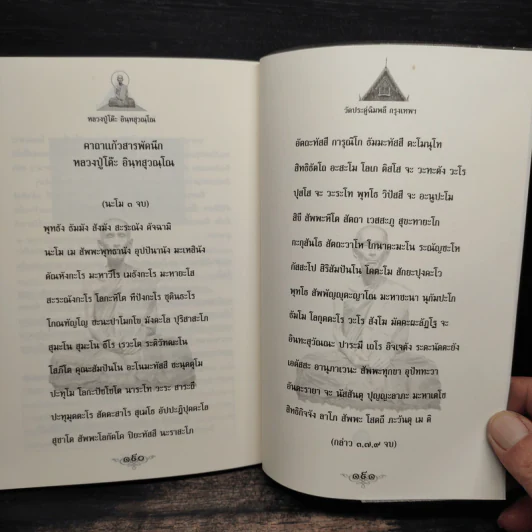 หลวงปู่โต๊ะ อินฺทสุวณฺโณ
คาถาแก้วสารพัดนึก
หลวงปู่โต๊ะ อินฺทสุวณฺโณ
(นะโม ๓ จบ)
พุทธัง ธัมมัง สังฆัง สะระณัง คัจฉามิ
นะโม เม สัพพะพุทธานัง อุปปันนานัง มะเหสินัง
ตัณหังกะโร มะหาวีโร เมธังกะโร มะหายะโส
สะระณังกะโร โลกะหิโต ทีปังกะโร ชุตินธะโร
โกณฑัญโญ ชะนะปาโมกโข มังคะโล ปุริสาสะโภ
สุมะโน สุมะโน ธีโร เรวะโต ระติวัทฒะโน
โสภีโต คุณะสัมปันโน อะโนมะทัสสี ชะนุตตุโม
ปะทุโม โลกะปัชโชโต นาระโท วะระ สาระถี
ปะทุมุตตะโร สัตตะสาโร สุเมโธ อัปปะฏิปุคคะโล
สุชาโต สัพพะโลกัคโค ปิยะทัสสี นะราสะโภ
๑๕๐
วัดประดู่ฉิมพลี กรุงเทพฯ
อัตถะทัสสี การุณิโก ธัมมะทัสสี ตะโมนุโท
สิทธัตโถ อะสะโม โลเก ติสโส จะ วะทะตัง วะโร
ปุสโส จะ วะระโท พุทโธ วิปัสสี จะ อะนูปะโม
สิขี สัพพะหิโต สัตถา เวสสะภู สุขะทายะโก
กะกุสันโธ สัตถะวาโห โกนาคะมะโน ระณัญชะโห
กัสสะโป สิริสัมปันโน โคตะโม สักยะปุงคะโว
พุทโธ สัพพัญญุตะญาโณ มะหาชะนา นุกัมปะโก
ธัมโม โลกุตตะโร วะโร สังโฆ มัคคะผะลัฏโฐ จะ
อินทะสุวัณณะ ปาระมี เถโร อิจเจตัง ระตะนัตตะยัง
เอตัสสะ อานุภาเวนะ สัพพะทุกขา อุปัททะวา
อันตะรายา จะ นัสสันตุ ปุญญะลาภะ มะหาเตโช
สิทธิกิจจัง ลาโภ สัพพะ โสตถี ภะวันตุ เม ติ
(กล่าว ๓,๗,๙ จบ)
๑๕๑